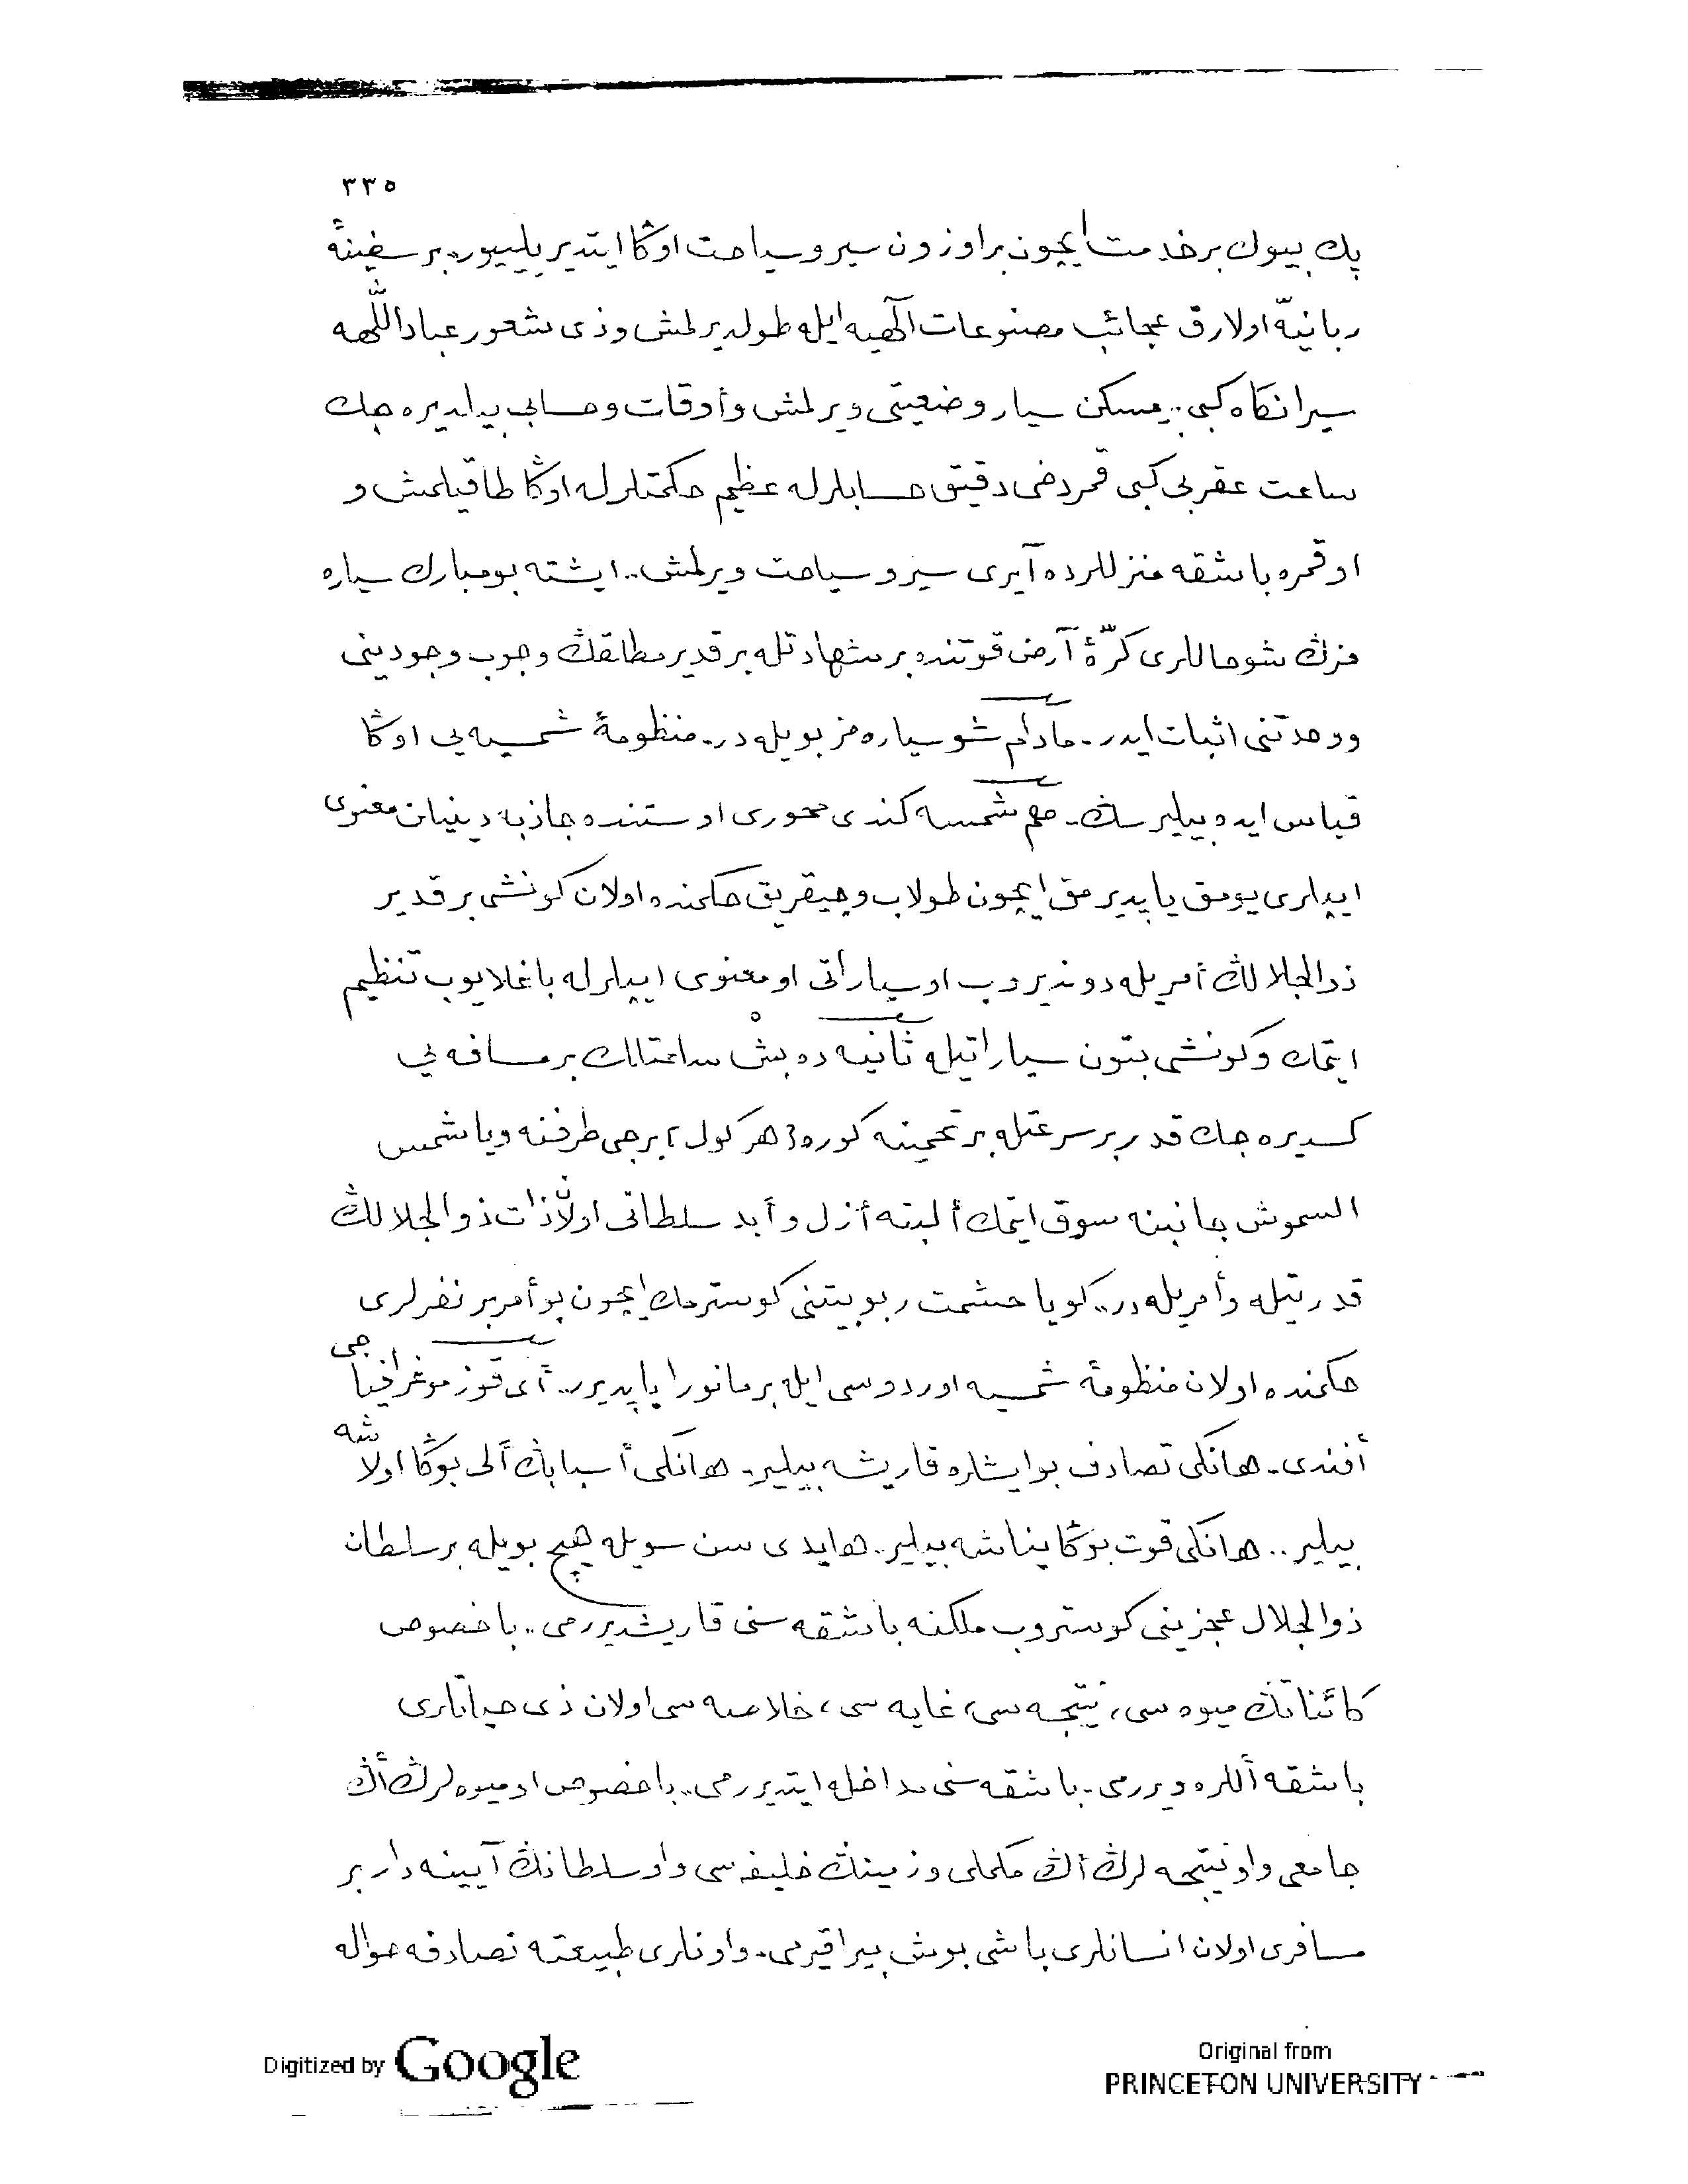 ٣٣٥
پك بيوك بر خدمت ايچون بر اوزون سير و سياحت اوڭا ايتديريلييور. بر سفينۀ
ربانيّه اولارق عجائب مصنوعات آلٓهيه ايله طولديرلمش وذى شعور عباداللّٰهه
سيرانكاه كبى.. بر مسكن سيار وضعيتى ويرلمش وأوقات وحسابى بيلديره جك
ساعت عقربى كبى قمر دخى دقيق حسابلرله عظيم حكمتلرله اوڭا طاقيلمش و
او قمره باشقه منزللرده آيرى سير و سياحت ويرلمش.. ايشته بو مبارك سياره
مزڭ شو حاللرى كرّۀ آرض قوتنده بر شهادتله بر قدير مطلقڭ وجوب وجودينى
ووحدتنى اثبات ايدر. مادام شو سياره مز بويله در. منظومۀ شمسيه يى اوڭا
قياس ايده بيليرسڭ. هم شمسه كندى محورى اوستنده جاذبه دينيلن معنوى
ايپلرى يومق ياپديرمق ايچون طولاب وچيقريق حكمنده اولان كونشى بر قدير
ذوالجلالڭ أمريله دونديروب او سياراتى او معنوى ايپلرله باغلايوب تنظيم
ايتمك وكونشى بتون سياراتيله ثانيه ده بش ساعتلك بر مسافه يى
كسديره جك قدر بر سرعتله بر تخمينه كوره (هر كول) برجى طرفنه ويا شمس
السموش جانبنه سوق ايتمك ألبته أزل وأبد سلطانى اولان ذات ذوالجلالڭ
قدرتيله وأمريله در.. كويا حشمت ربوبيتنى كوسترمك ايچون بو أمربر نفرلرى
حكمنده اولان منظومۀ شمسيه اوردوسى ايله بر مانورا ياپديرر.. أى قوزموغرافياجى
أفندى. هانكى تصادف بو ايشلره قاريشه بيلير. هانكى أسبابڭ ألى بوڭا اولاشه
بيلير.. هانكى قوت بوڭا يناشه بيلير. هايدى سن سويله هيچ بويله بر سلطان
ذوالجلال عجزينى كوستروب ملكنه باشقه سنى قاريشديررمى.. باخصوص
كائناتڭ ميوه سى، نتيجه سى، غايه سى، خلاصه سى اولان ذى حياتلرى
باشقه أللره ويررمى. باشقه سنى مداخله ايتديررمى.. باخصوص او ميوه لرڭ أڭ
جامعى واو نتيجه لرڭ أڭ مكملى وزمينڭ خليفه سى واو سلطانڭ آيينه دار بر
مسافرى اولان انسانلرى باشى بوش بيراقيرمى. واونلرى طبيعته تصادفه حواله
Digitized by Google
Original from
PRINCETON UNIVERSITY